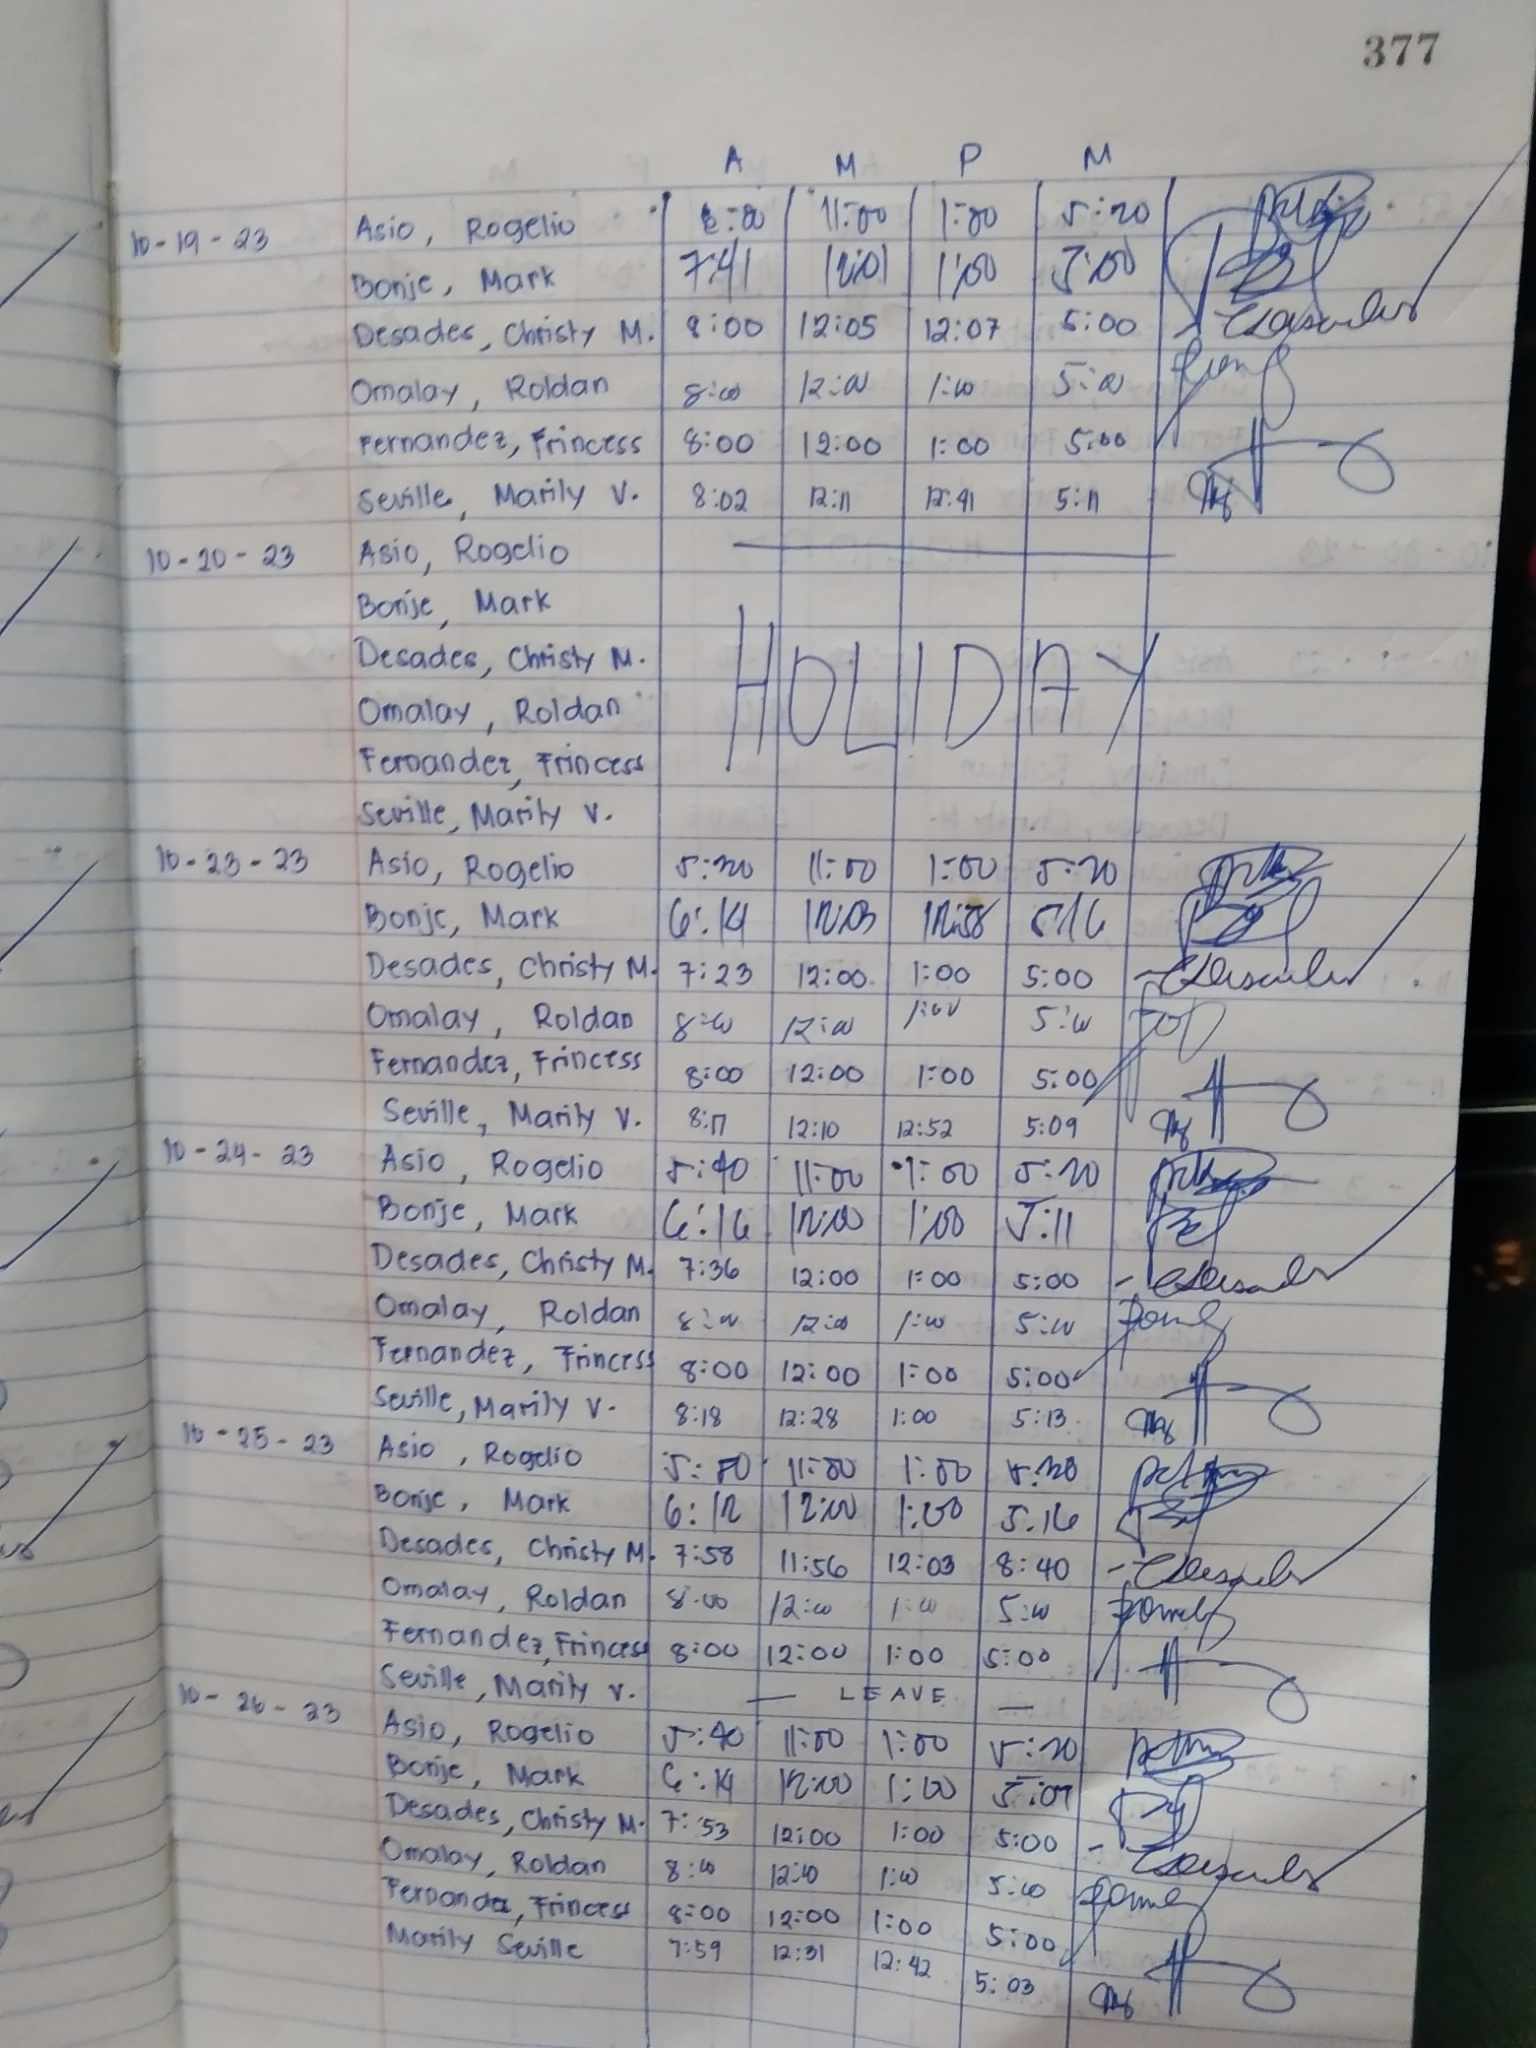 377
A M P M
10-19-23 Asio, Rogelio 11:00 1:00 5:20
Bonje, Mark 7:41 12:01 1:00 5:00
Desades, Christy M. 8:00 12:05 12:07 5:00
Omalay, Roldan 8:00 12:00 1:00 5:00
Fernandez, Frincess 8:00 12:00 1:00 5:00
Seville, Marily V. 8:02 12:11 12:41 5:11
10-20-23 Asio, Rogelio
Bonje, Mark
Desades, Christy M.
HOLIDAY
Omalay, Roldan
Fernandez, Frincess
Seville, Marily V.
10-23-23 Asio, Rogelio 5:20 11:00 1:00 5:20
Bonje, Mark 6:14 12:03 12:58 5:16
Desades, Christy M. 7:23 12:00 1:00 5:00
Omalay, Roldan 8:00 12:00 1:00 5:00
Fernandez, Frincess 8:00 12:00 1:00 5:00
Seville, Marily V. 8:17 12:10 12:52 5:09
10-24-23 Asio, Rogelio 5:40 11:00 1:00 5:20
Bonje, Mark 6:16 12:00 1:00 5:11
Desades, Christy M. 7:36 12:00 1:00 5:00
Omalay, Roldan 8:00 12:00 1:00 5:00
Fernandez, Frincess 8:00 12:00 1:00 5:00
Seville, Marily V. 8:18 12:28 1:00 5:13
10-25-23 Asio, Rogelio 11:00 1:00
Bonje, Mark 6:12 12:00 1:00 5.16
Desades, Christy M. 7:58 11:56 12:03 8:40
Omalay, Roldan 8:00 12:00 1:00 5:00
Fernandez, Frincess 8:00 12:00 1:00 5:00
Seville, Marily V. — LEAVE —
10-26-23 Asio, Rogelio 5:40 11:00 1:00 5:20
Bonje, Mark 6:14 12:00 1:00 5:07
Desades, Christy M. 7:53 12:00 1:00 5:00
Omalay, Roldan 8:00 12:00 1:00 5:00
Fernandez, Frincess 8:00 12:00 1:00 5:00
Marily Seville 7:59 12:31 12:42 5:03